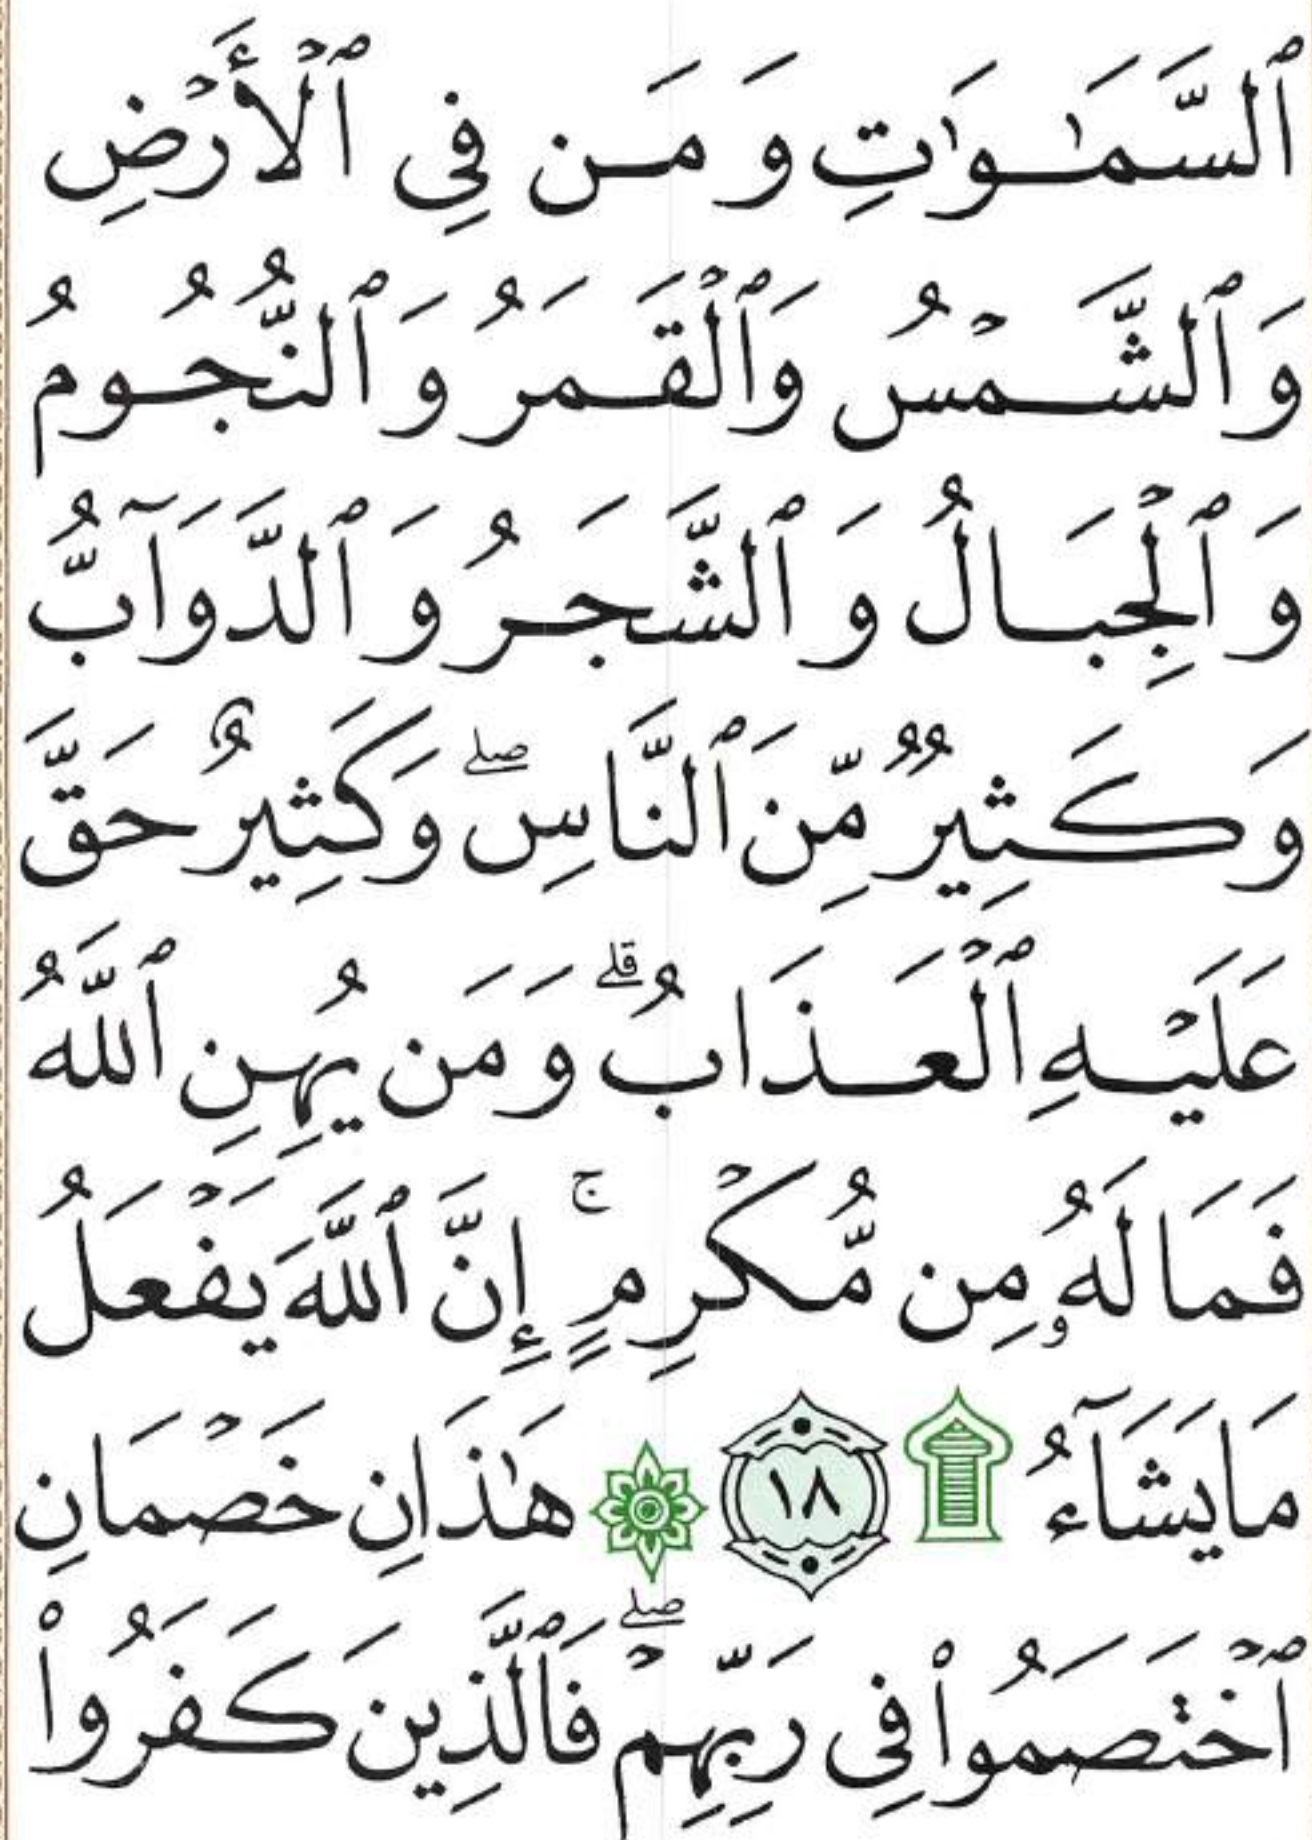 ٱلسَّمَـٰوَٰتِ وَمَن فِى ٱلْأَرْضِ
وَٱلشَّمْسُ وَٱلْقَمَرُ وَٱلنُّجُومُ
وَٱلْجِبَالُ وَٱلشَّجَرُ وَٱلدَّوَآبُّ
وَكَثِيرٌ مِّنَ ٱلنَّاسِ ۖ وَكَثِيرٌ حَقَّ
عَلَيْهِ ٱلْعَذَابُ ۗ وَمَن يُهِنِ ٱللَّهُ
فَمَا لَهُۥ مِن مُّكْرِمٍ ۚ إِنَّ ٱللَّهَ يَفْعَلُ
مَا يَشَآءُ ۩ ١٨ ۞ هَـٰذَانِ خَصْمَانِ
ٱخْتَصَمُوا۟ فِى رَبِّهِمْ ۖ فَٱلَّذِينَ كَفَرُوا۟